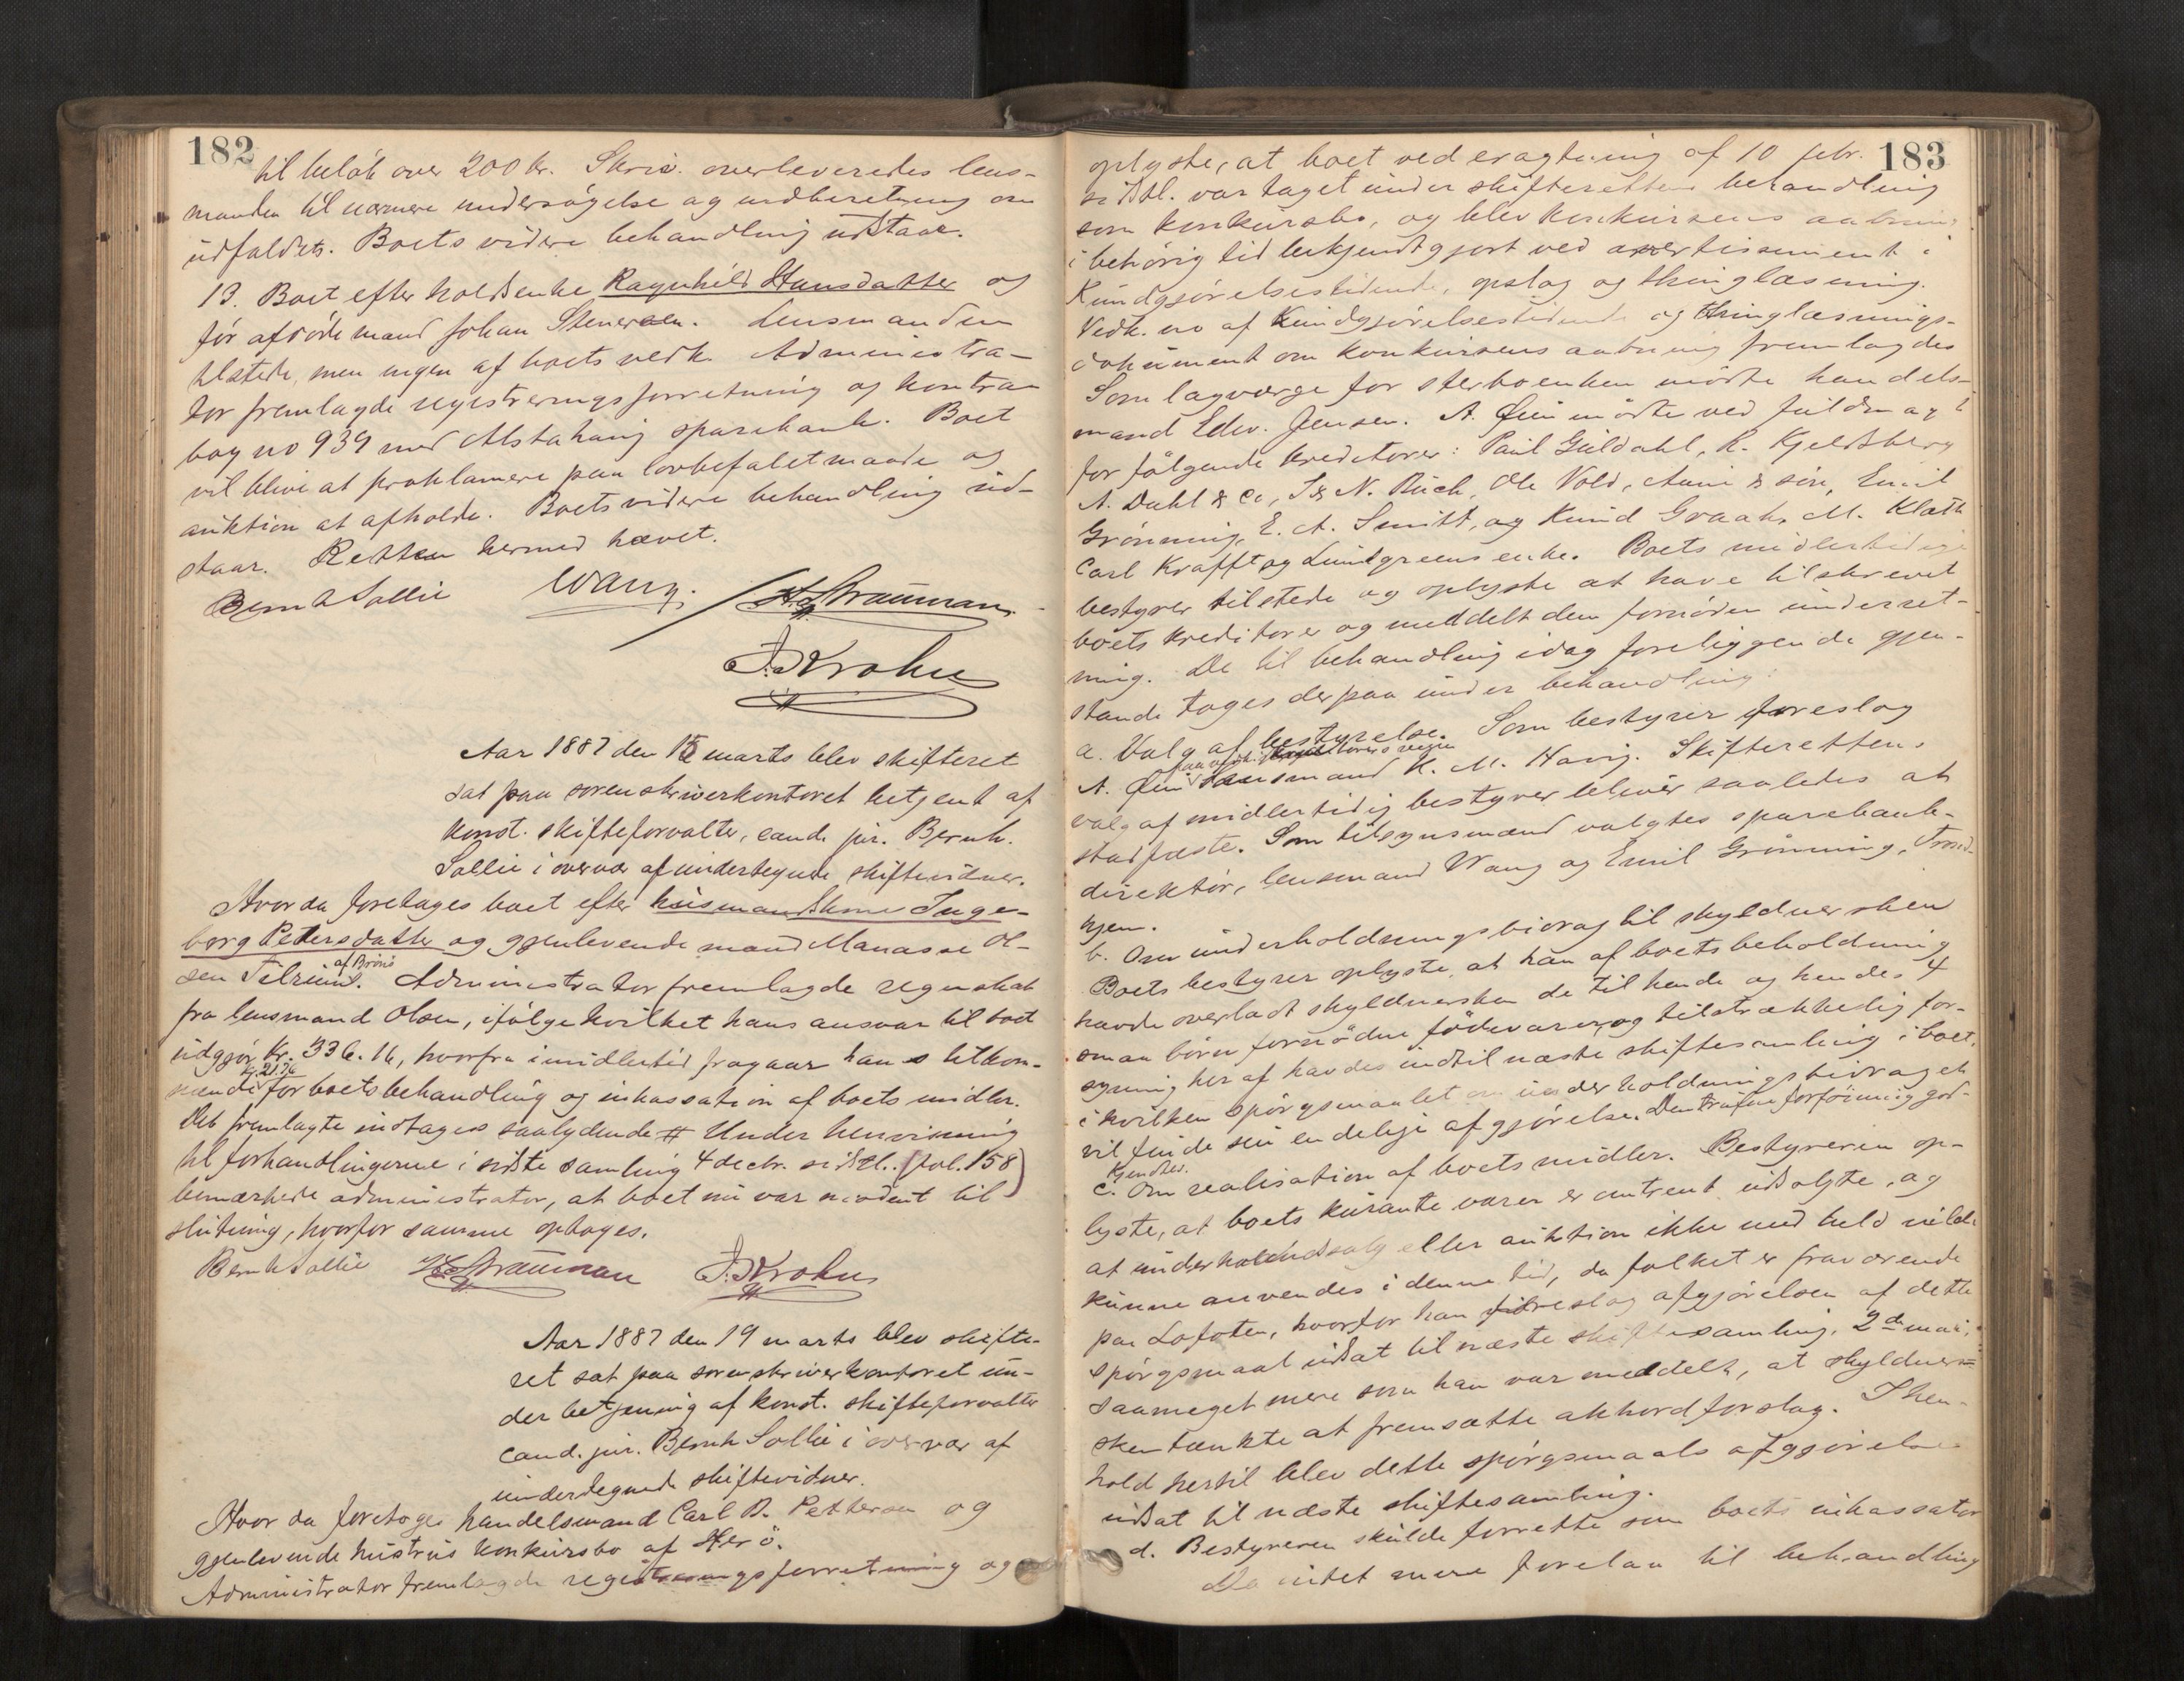 182
til beløb over 200 kr. Skriv. overleveredes lens-
manden til nærmere undersøgelse og indberetning om
udfaldet. Boets videre behandling udstaar.
13. Boet efter holdsenke Ragnhild Hansdatter og
før afdøde mand Johan Stenersen. Lensmanden
tilstede, men ingen af boets vedk. Administra-
tor fremlagde registreringsforretning og kontra
bog no 939 med Alstahaug sparebank. Boet
vil blive at proklamere paa lovbefalet maade og
auktion at afholde. Boets videre behandling ud-
staar. Retten hermed hævet.
Bernh Sollie Wang. H. Strauman
J. Krohn
Aar 1887 den 15 marts blev skifteret
sat paa sorenskriverkontoret betjent af
konst. skifteforvalter, cand. jur. Bernh.
Sollie i overvær af undertegnede skiftevidner.
Hvor da foretages boet efter husmandskone Inge-
borg Petersdatter og gjenlevende mand Manasse Ol-
af Brönö
sen Tilrem. Administrator fremlagde regnskab
fra lensmand Olsen, ifølge hvilket hans ansvar til boet
udgjør kr. 336.16, hvorfra imidlertid fragaar hans tilkom-
kr. 21.76
mende for boets behandling og inkassation af boets midler.
Det fremlagte indtages saalydende # Under henvisning
til forhandlingerne i sidste samling 4 decbr. sidstl. (fol. 158)
bemærkede administrator, at boet nu var modent til
slutning, hvorfor samme optages.
Bernh Sollie H. Strauman J. Krohn
Aar 1887 den 19 marts blev skifte-
ret sat paa sorenskriverkontoret un-
der betjening af konst. skifteforvalter
cand. jur. Bernh Sollie i overvær af
undertegnede skiftevidner.
Hvor da foretoges handelsmand Carl B. Pettersen og
gjenlevende hustrus konkursbo af Herö.
Administrator fremlagde registreringsforretning og
183
oplyste, at boet ved eragtning af 10 febr.
sidstl. var taget under skifterettens behandling
som konkursbo, og blev konkursens aabning
i behørig tid bekjendtgjort ved avertissement i
Kundgjørelsestidende, opslag og thinglæsning.
Vedk. no af Kundgjørelsestidende og thinglæsnings-
dokument om konkursens aabning fremlagdes
Som lagværge for sterboenken mødte handels-
mand Edv. Jensen. A. Øien mødte ved fuldmagt
for følgende kreditorer: Paul Guldahl, R. Kjeldsberg
A. Dahl & Co, I & N. Buch, Ole Vold, Aune & søn, Emil
Grønning, E. A. Smitt, og Knud Graah, M. Klæth
Carl Krafft og Lundgreens enke. Boets midlertidige
bestyrer tilstede og oplyste at have tilskrevet
boets kreditorer og meddelt dem fornøden underret-
ning. De til behandling idag foreliggende gjen-
stande toges derpaa under behandling:
a. Valg af bestyrelse. Som bestyrer foreslog
paa vedk. kreditorers vegne
A. Øien lensmand K. M. Havig. Skifterettens
valg af midlertidig bestyrer bliver saaledes at
stadfæste. Som tilsynsmænd valgtes sparebank-
direktør, lensmand Wang og Emil Grønning, Trond-
hjem.
b. Om underholdningsbidrag til skyldnersken
Boets bestyrer oplyste, at han af boets beholdning
havde overladt skyldnersken de til hende og hendes 4
smaa børn fornødne fødevarer, og tilstrækkelig for-
syning her af havdes indtil næste skiftesamling i boet,
i hvilken spørgsmaalet om underholdningsbidraget
vil finde sin endelige afgjørelse. Den trufne forføining god-
kjendtes.
c. Om realisation af boets midler. Bestyreren op-
lyste, at boets kurante varer er omtrent udsolgte, og
at underhaandsalg eller auktion ikke med held vilde
kunne anvendes i denne tid, da folket er fraværende
paa Lofoten, hvorfor han foreslog afgjørelsen af dette
spørgsmaal udsat til næste skiftesamling, 2den mai,
saameget mere som han var meddelt, at skyldner-
sken tænkte at fremsætte akkordforslag. I hen-
hold hertil blev dette spørgsmaals afgjørelse
udsat til næste skiftesamling.
d. Bestyreren skulde forrette som boets inkassator
Da intet mere forelaa til behandling